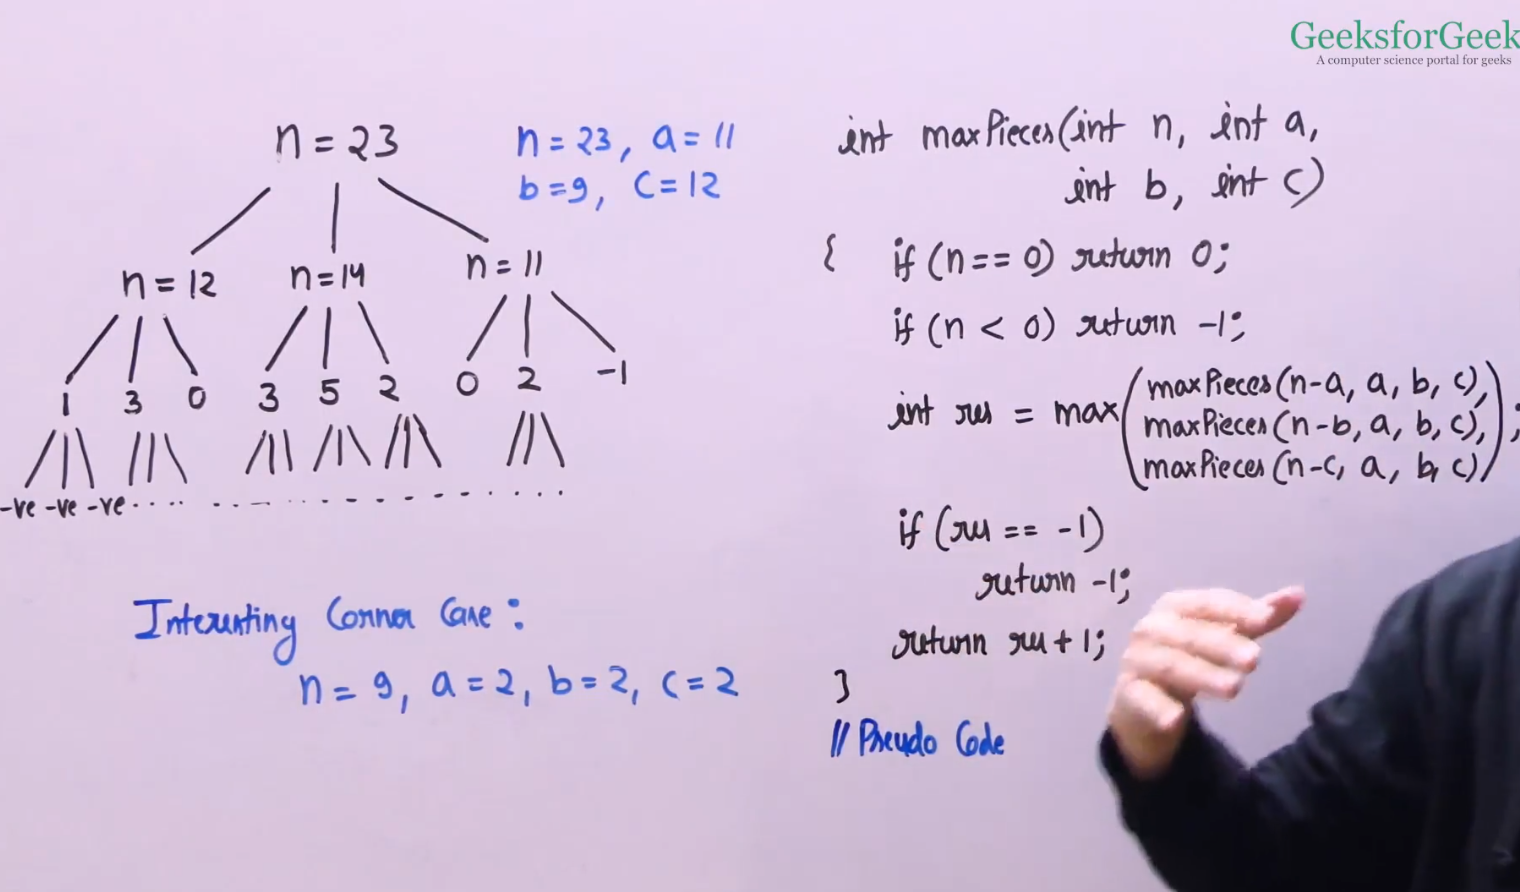 GeeksforGeek
A computer science portal for geeks
n = 23
n = 23, a = 11
b = 9, c = 12
n = 12 n = 14 n = 11
1 3 0 3 5 2 0 2 -1
-ve -ve -ve . . . . . . . . . . . . . . . . . .
Interesting Corner Case :
n = 9, a = 2, b = 2, c = 2
int maxPieces(int n, int a,
int b, int c)
{ if (n == 0) return 0;
if (n < 0) return -1;
int res = max(maxPieces(n-a, a, b, c),
maxPieces(n-b, a, b, c),
maxPieces(n-c, a, b, c));
if (res == -1)
return -1;
return res + 1;
}
// Pseudo Code